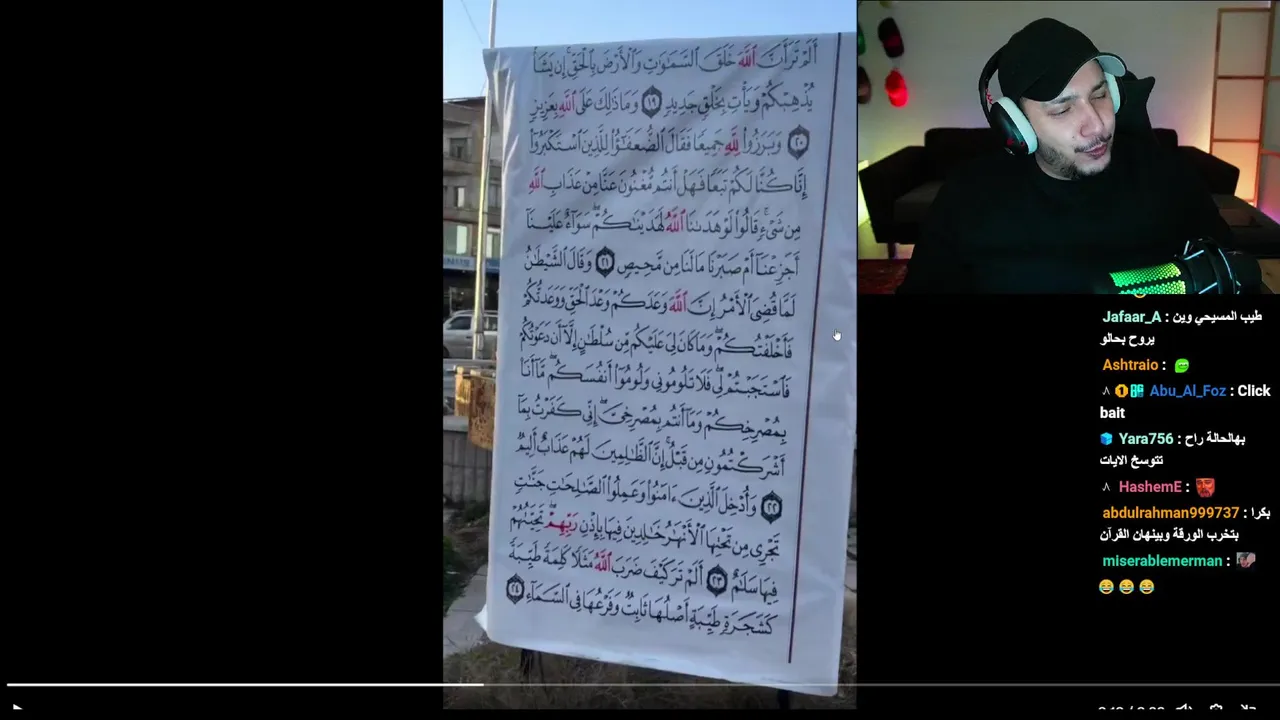 أَلَمْ تَرَ أَنَّ ٱللَّهَ خَلَقَ ٱلسَّمَٰوَٰتِ وَٱلْأَرْضَ بِٱلْحَقِّ إِن يَشَأْ
يُذْهِبْكُمْ وَيَأْتِ بِخَلْقٍ جَدِيدٍ ١٩ وَمَا ذَٰلِكَ عَلَى ٱللَّهِ بِعَزِيزٍ
٢٠ وَبَرَزُوا۟ لِلَّهِ جَمِيعًا فَقَالَ ٱلضُّعَفَٰٓؤُا۟ لِلَّذِينَ ٱسْتَكْبَرُوٓا۟
إِنَّا كُنَّا لَكُمْ تَبَعًا فَهَلْ أَنتُم مُّغْنُونَ عَنَّا مِنْ عَذَابِ ٱللَّهِ
مِن شَىْءٍ ۚ قَالُوا۟ لَوْ هَدَىٰنَا ٱللَّهُ لَهَدَيْنَٰكُمْ ۖ سَوَآءٌ عَلَيْنَآ
أَجَزِعْنَآ أَمْ صَبَرْنَا مَا لَنَا مِن مَّحِيصٍ ٢١ وَقَالَ ٱلشَّيْطَٰنُ
لَمَّا قُضِىَ ٱلْأَمْرُ إِنَّ ٱللَّهَ وَعَدَكُمْ وَعْدَ ٱلْحَقِّ وَوَعَدتُّكُمْ
فَأَخْلَفْتُكُمْ ۖ وَمَا كَانَ لِىَ عَلَيْكُم مِّن سُلْطَٰنٍ إِلَّآ أَن دَعَوْتُكُمْ
فَٱسْتَجَبْتُمْ لِى ۖ فَلَا تَلُومُونِى وَلُومُوٓا۟ أَنفُسَكُم ۖ مَّآ أَنَا۠
بِمُصْرِخِكُمْ وَمَآ أَنتُم بِمُصْرِخِىَّ ۖ إِنِّى كَفَرْتُ بِمَآ
أَشْرَكْتُمُونِ مِن قَبْلُ ۗ إِنَّ ٱلظَّٰلِمِينَ لَهُمْ عَذَابٌ أَلِيمٌ
٢٢ وَأُدْخِلَ ٱلَّذِينَ ءَامَنُوا۟ وَعَمِلُوا۟ ٱلصَّٰلِحَٰتِ جَنَّٰتٍ
تَجْرِى مِن تَحْتِهَا ٱلْأَنْهَٰرُ خَٰلِدِينَ فِيهَا بِإِذْنِ رَبِّهِمْ ۖ تَحِيَّتُهُمْ
فِيهَا سَلَٰمٌ ٢٣ أَلَمْ تَرَ كَيْفَ ضَرَبَ ٱللَّهُ مَثَلًا كَلِمَةً طَيِّبَةً
كَشَجَرَةٍ طَيِّبَةٍ أَصْلُهَا ثَابِتٌ وَفَرْعُهَا فِى ٱلسَّمَآءِ ٢٤
Jafaar_A : طيب المسيحي وين
يروح بحالو
Ashtraio :
Abu_Al_Foz : Click
bait
Yara756 : بهالحالة راح
تتوسخ الايات
HashemE :
abdulrahman999737 : بكرا
بتخرب الورقة وبينهان القرآن
miserablemerman :